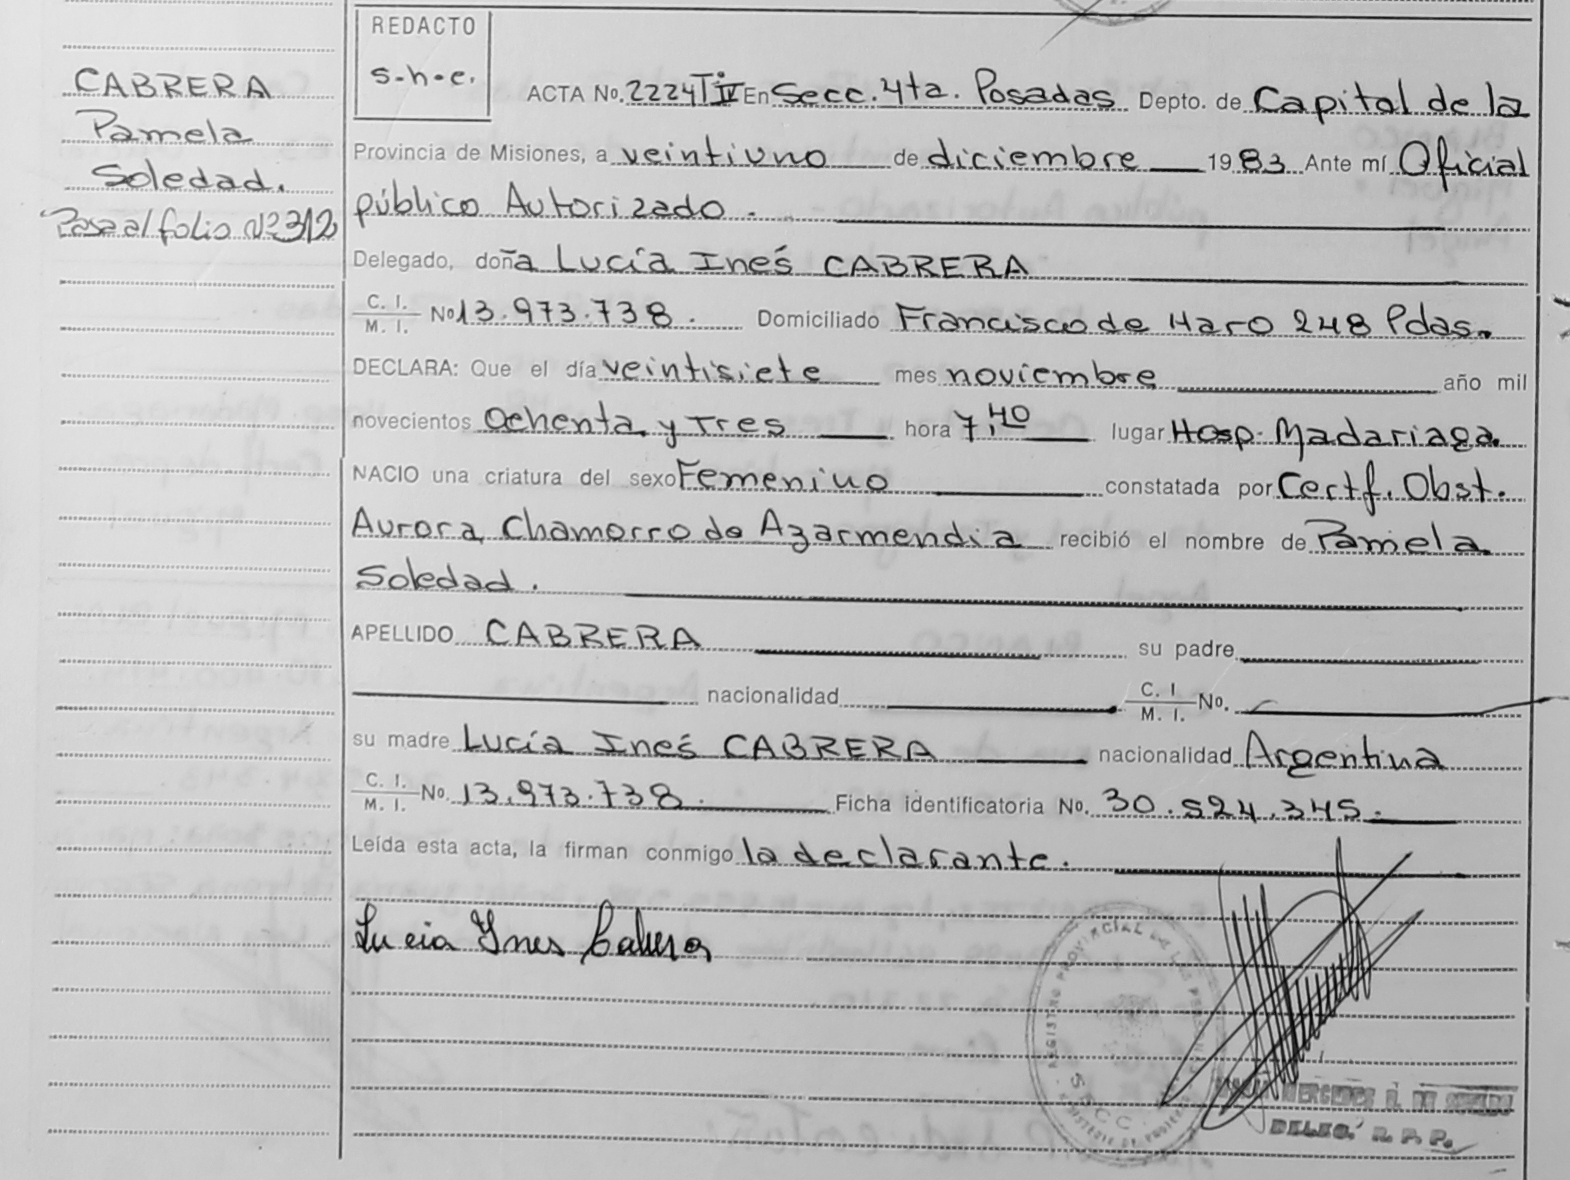 REDACTO
s-h-e.
CABRERA
Pamela
Soledad.
Pasa al folio Nº 312
ACTA No. 2224 T IV En Secc. 4ta. Posadas Depto. de Capital de la
Provincia de Misiones, a veintiuno de diciembre 1983 Ante mí Oficial
público Autorizado.
Delegado, doña Lucía Inés CABRERA
C. I. / M. I. No 13.973.738. Domiciliado Francisco de Haro 248 Pdas.
DECLARA: Que el día veintisiete mes noviembre año mil
novecientos Ochenta y Tres hora 7,40 lugar Hosp. Madariaga
NACIO una criatura del sexo Femenino constatada por Certf. Obst.
Aurora Chamorro de Azarmendia recibió el nombre de Pamela
Soledad.
APELLIDO CABRERA su padre
nacionalidad C. I. / M. I. No.
su madre Lucía Inés CABRERA nacionalidad Argentina
C. I. / M. I. No. 13.973.738. Ficha identificatoria No. 30.524.345.
Leída esta acta, la firman conmigo la declarante.
Lucia Ynes Cabrera
REGISTRO PROVINCIAL DE LAS PERSONAS
SECC.
MERCEDES
DELEG. R. P. P.